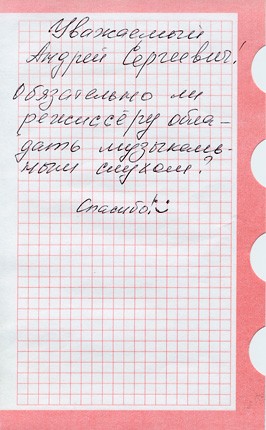 Уважаемый
Андрей Сергеевич!
Обязательно ли
режиссёру обла-
дать музыкаль-
ным слухом?
Спасибо!